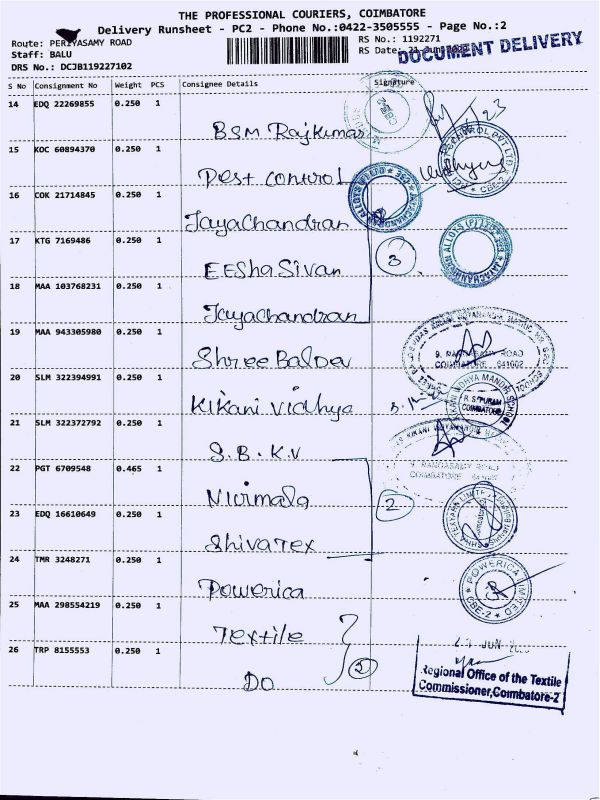 THE PROFESSIONAL COURIERS, COIMBATORE
Delivery Runsheet - PC2 - Phone No.:0422-3505555 - Page No.:2
Route: PERIYASAMY ROAD
RS No.: 1192271
Staff: BALU
RS Date: 21 Jun
DOCUMENT DELIVERY
DRS No.: DCJB119227102
S No Consignment No Weight PCS Consignee Details Signature
14 EDQ 22269855 0.250 1
BSM Rajkumar
15 KOC 60894370 0.250 1
Pest control
16 COK 21714845 0.250 1
Jayachandran
17 KTG 7169486 0.250 1
EEshaSivan
3
18 MAA 103768231 0.250 1
Jayachandran
19 MAA 943305980 0.250 1
Shree Baldev
9, RANGASAMY ROAD
COIMBATORE 641002
20 SLM 322394991 0.250 1
Kikani vidhya
R.S. PURAM
COIMBATORE
21 SLM 322372792 0.250 1
S.B.K.V
9, RANGASAMY ROAD
COIMBATORE
22 PGT 6709548 0.465 1
Nirmala
2
23 EDQ 16610649 0.250 1
Shivatex
24 TMR 3248271 0.250 1
Powerica
POWERICA LIMITED
CBE-2
25 MAA 298554219 0.250 1
Textile
26 TRP 8155553 0.250 1
DO
JUN
Regional Office of the Textile
Commissioner,Coimbatore-2